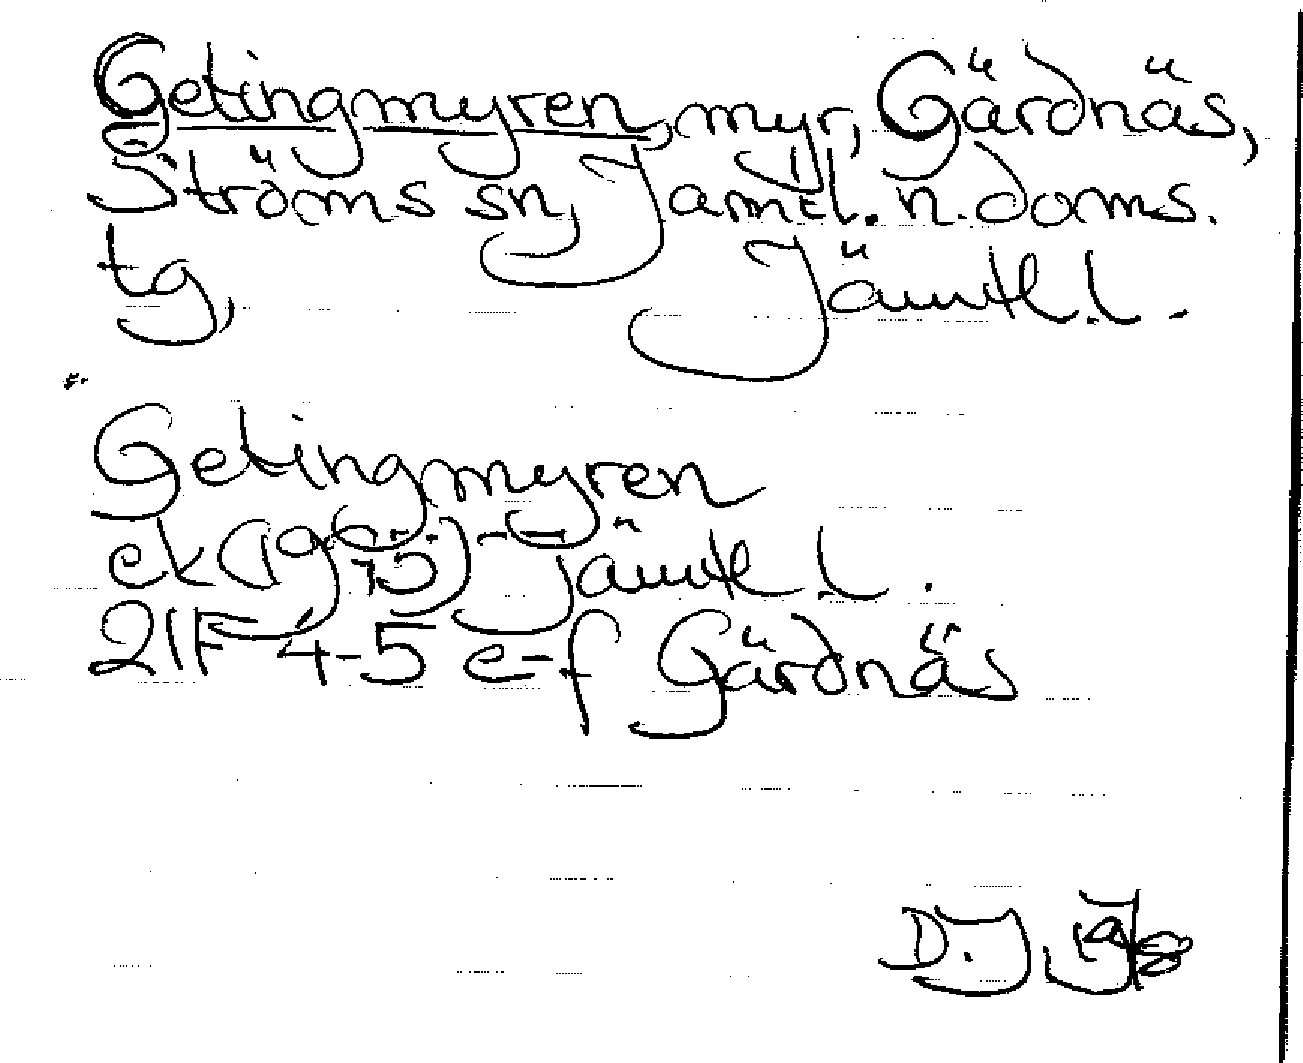 Getingmyren, myr, Gärdnäs,
Ströms sn, Jämtl. n. doms.
tg, Jämtl. l.
Getingmyren
ek (1975) Jämtl l.
21F 4-5 e-f Gärdnäs
D.J.